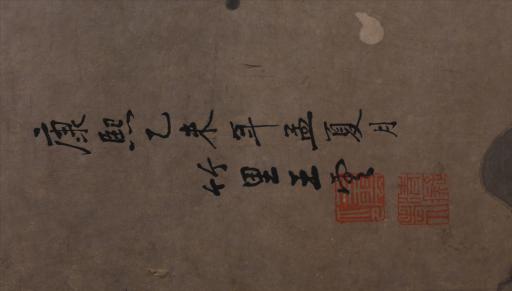 康熙乙未年孟夏月
竹里王雲